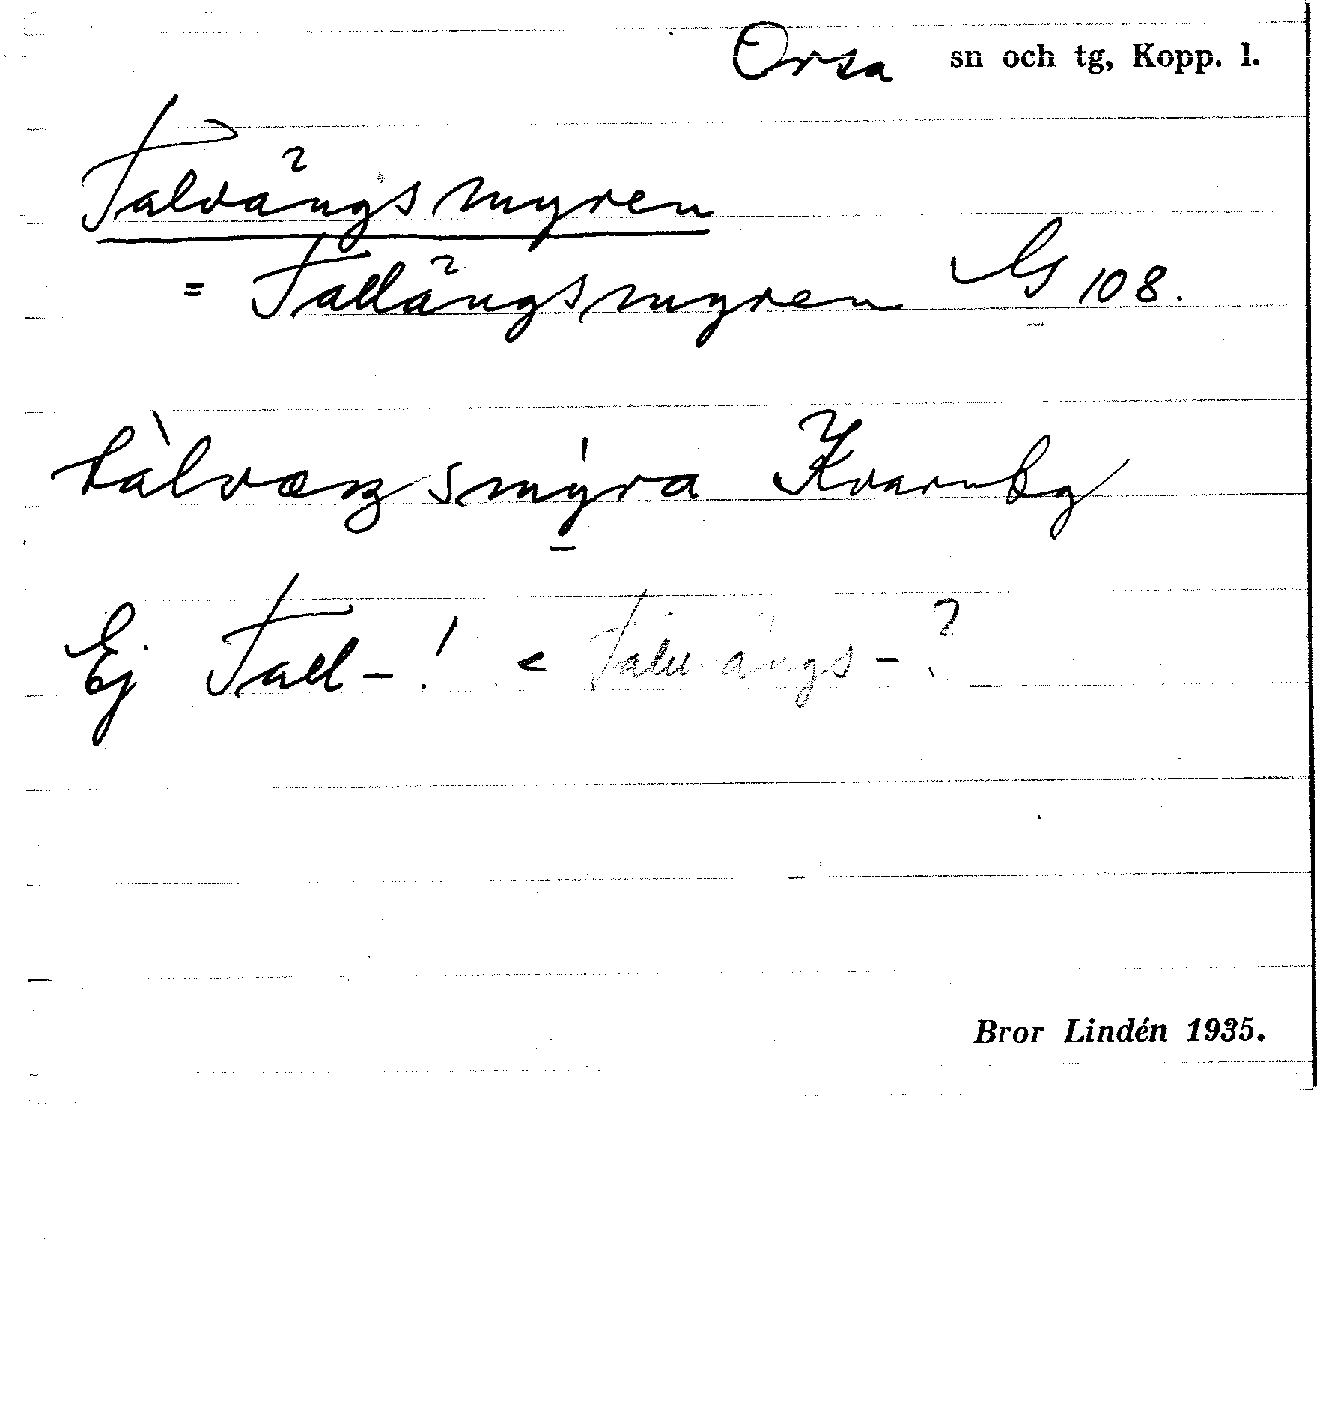 Orsa sn och tg, Kopp. l.
Talvängsmyren
= Tallängsmyren G 108.
tàlvæŋsmýra Kvarnbg
Ej Tall-! < Talu ängs-?
Bror Lindén 1935.